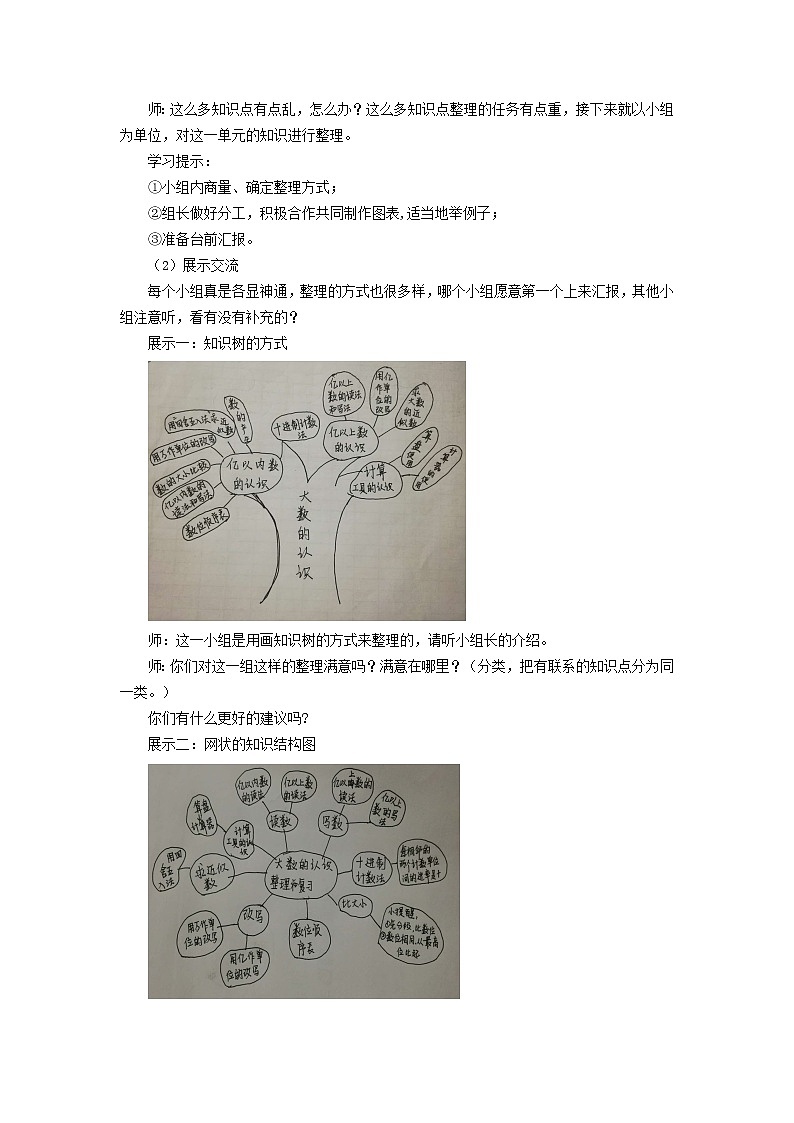 师：这么多知识点有点乱，怎么办？这么多知识点整理的任务有点重，接下来就以小组
为单位，对这一单元的知识进行整理。
学习提示：
①小组内商量、确定整理方式；
②组长做好分工，积极合作共同制作图表,适当地举例子；
③准备台前汇报。
（2）展示交流
每个小组真是各显神通，整理的方式也很多样，哪个小组愿意第一个上来汇报，其他小
组注意听，看有没有补充的？
展示一：知识树的方式
数的产生
用四舍五入法求近似数
用万作单位的改写
数的大小比较
亿以内数的
读法和写法
数位顺序表
亿以内数
的认识
十进制计数
法
亿以上
数的读法
和写法
用亿
作单
位的
改写
求
大数
的近
似数
亿以上数
的认识
算盘
使用
计算器的使用
计算
工具的认识
大
数
的
认
识
师：这一小组是用画知识树的方式来整理的，请听小组长的介绍。
师：你们对这一组这样的整理满意吗？满意在哪里？（分类，把有联系的知识点分为同
一类。）
你们有什么更好的建议吗?
展示二：网状的知识结构图
亿以内数
的读法
亿以上数
的读法
读数
写数
亿以上
数的写
法
算盘
计算器
计算
工具的认
识
用四
舍五
入法
求近似
数
大数的认识
整理和复习
十进制
计数法
每相邻的
两个计数单位
间的进率是十
比大小
小提醒，
①先分级，比数位
②数位相同，从最高
位比起
改写
用万作单
位的改写
用亿作单
位的改写
数位顺
序表